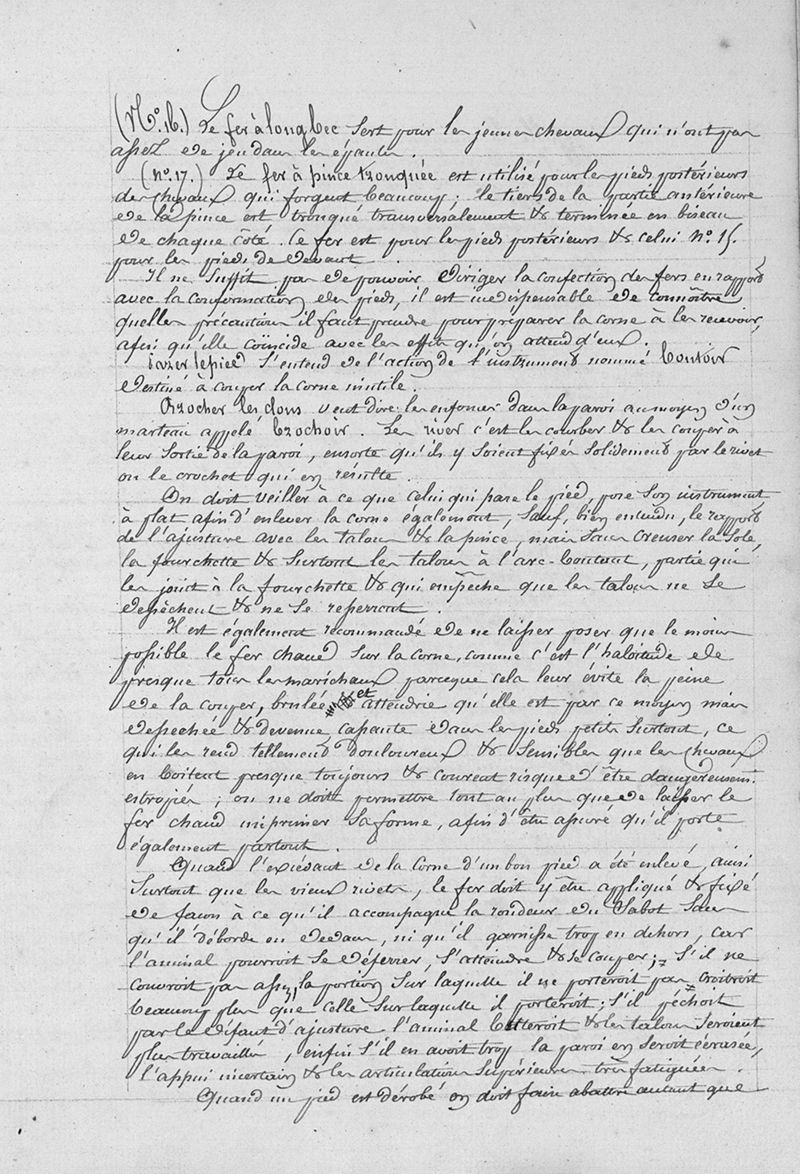 (N.º 16.) Le fer à long bec sert pour les jeunes chevaux qui n'ont pas
assez de jeu dans les épaules.
(nº. 17.) Le fer à pince tronquée est utilisé pour les pieds postérieurs
des chevaux qui forgent beaucoup; le tiers de la partie antérieure
de la pince est tronqué transversalement & terminée en biseau
de chaque côté. Ce fer est pour les pieds postérieurs & celui Nº. 15.
pour les pieds de devant.
Il ne suffit pas de pouvoir diriger la confection des fers en rapport
avec la conformation des pieds, il est indispensable de connoître
quelles précautions il faut prendre pour préparer la corne à les recevoir,
afin qu'elle coïncide avec les effets qu'on attend d'eux.
Parer le pied s'entend de l'action de l'instrument nommé boutoir
destiné à couper la corne inutile.
Brocher les clous veut dire les enfoncer dans la paroi au moyen d'un
marteau appelé brochoir. Les river c'est les courber & les couper à
leur sortie de la paroi, ensorte qu'ils y soient fixés solidement par le rivet
ou le crochet qui en résulte.
On doit veiller à ce que celui qui pare le pied, pose son instrument
à plat afin d'enlever la corne également, sauf, bien entendu, le rapport
de l'ajusture avec les talons & la pince, mais sans creuser la sole,
la fourchette & surtout les talons à l'arc-boutant, partie qui
les joint à la fourchette & qui empêche que les talons ne se
dessèchent & ne se resserrent.
Il est également recommandé de ne laisser poser que le moins
possible le fer chaud sur la corne, comme c'est l'habitude de
presque tous les maréchaux parceque cela leur évite la peine
de la couper, brulée et attendrie qu'elle est par ce moyen mais
dessechée & devenue cassante dans les pieds petits surtout, ce
qui les rend tellement douloureux & sensibles que les chevaux
en boitent presque toujours & courent risque d'être dangereusemt.
estropiés; on ne doit permettre tout au plus que de laisser le
fer chaud imprimer sa forme, afin d'être assuré qu'il porte
également partout.
Quand l'excédant de la corne d'un bon pied a été enlevé, ainsi
surtout que les vieux rivets, le fer doit y être appliqué & fixé
de facon à ce qu'il accompagne la rondeur du sabot sans
qu'il déborde en dedans, ni qu'il garnisse trop en dehors, car
l'animal pourroit se déferrer, s'atteindre & se couper; s'il ne
couvroit pas assez, la portion sur laquelle il ne porteroit pas croitroit
beaucoup plus que celle sur laquelle il porteroit; s'il péchoit
par le défaut d'ajusture l'animal butteroit & les talons seroient
plus travaillés, enfin s'il en avoit trop la paroi en seroit écrasée,
l'appui incertain & les articulations supérieures très fatiguées.
Quand un pied est dérobé on doit faire abattre autant que